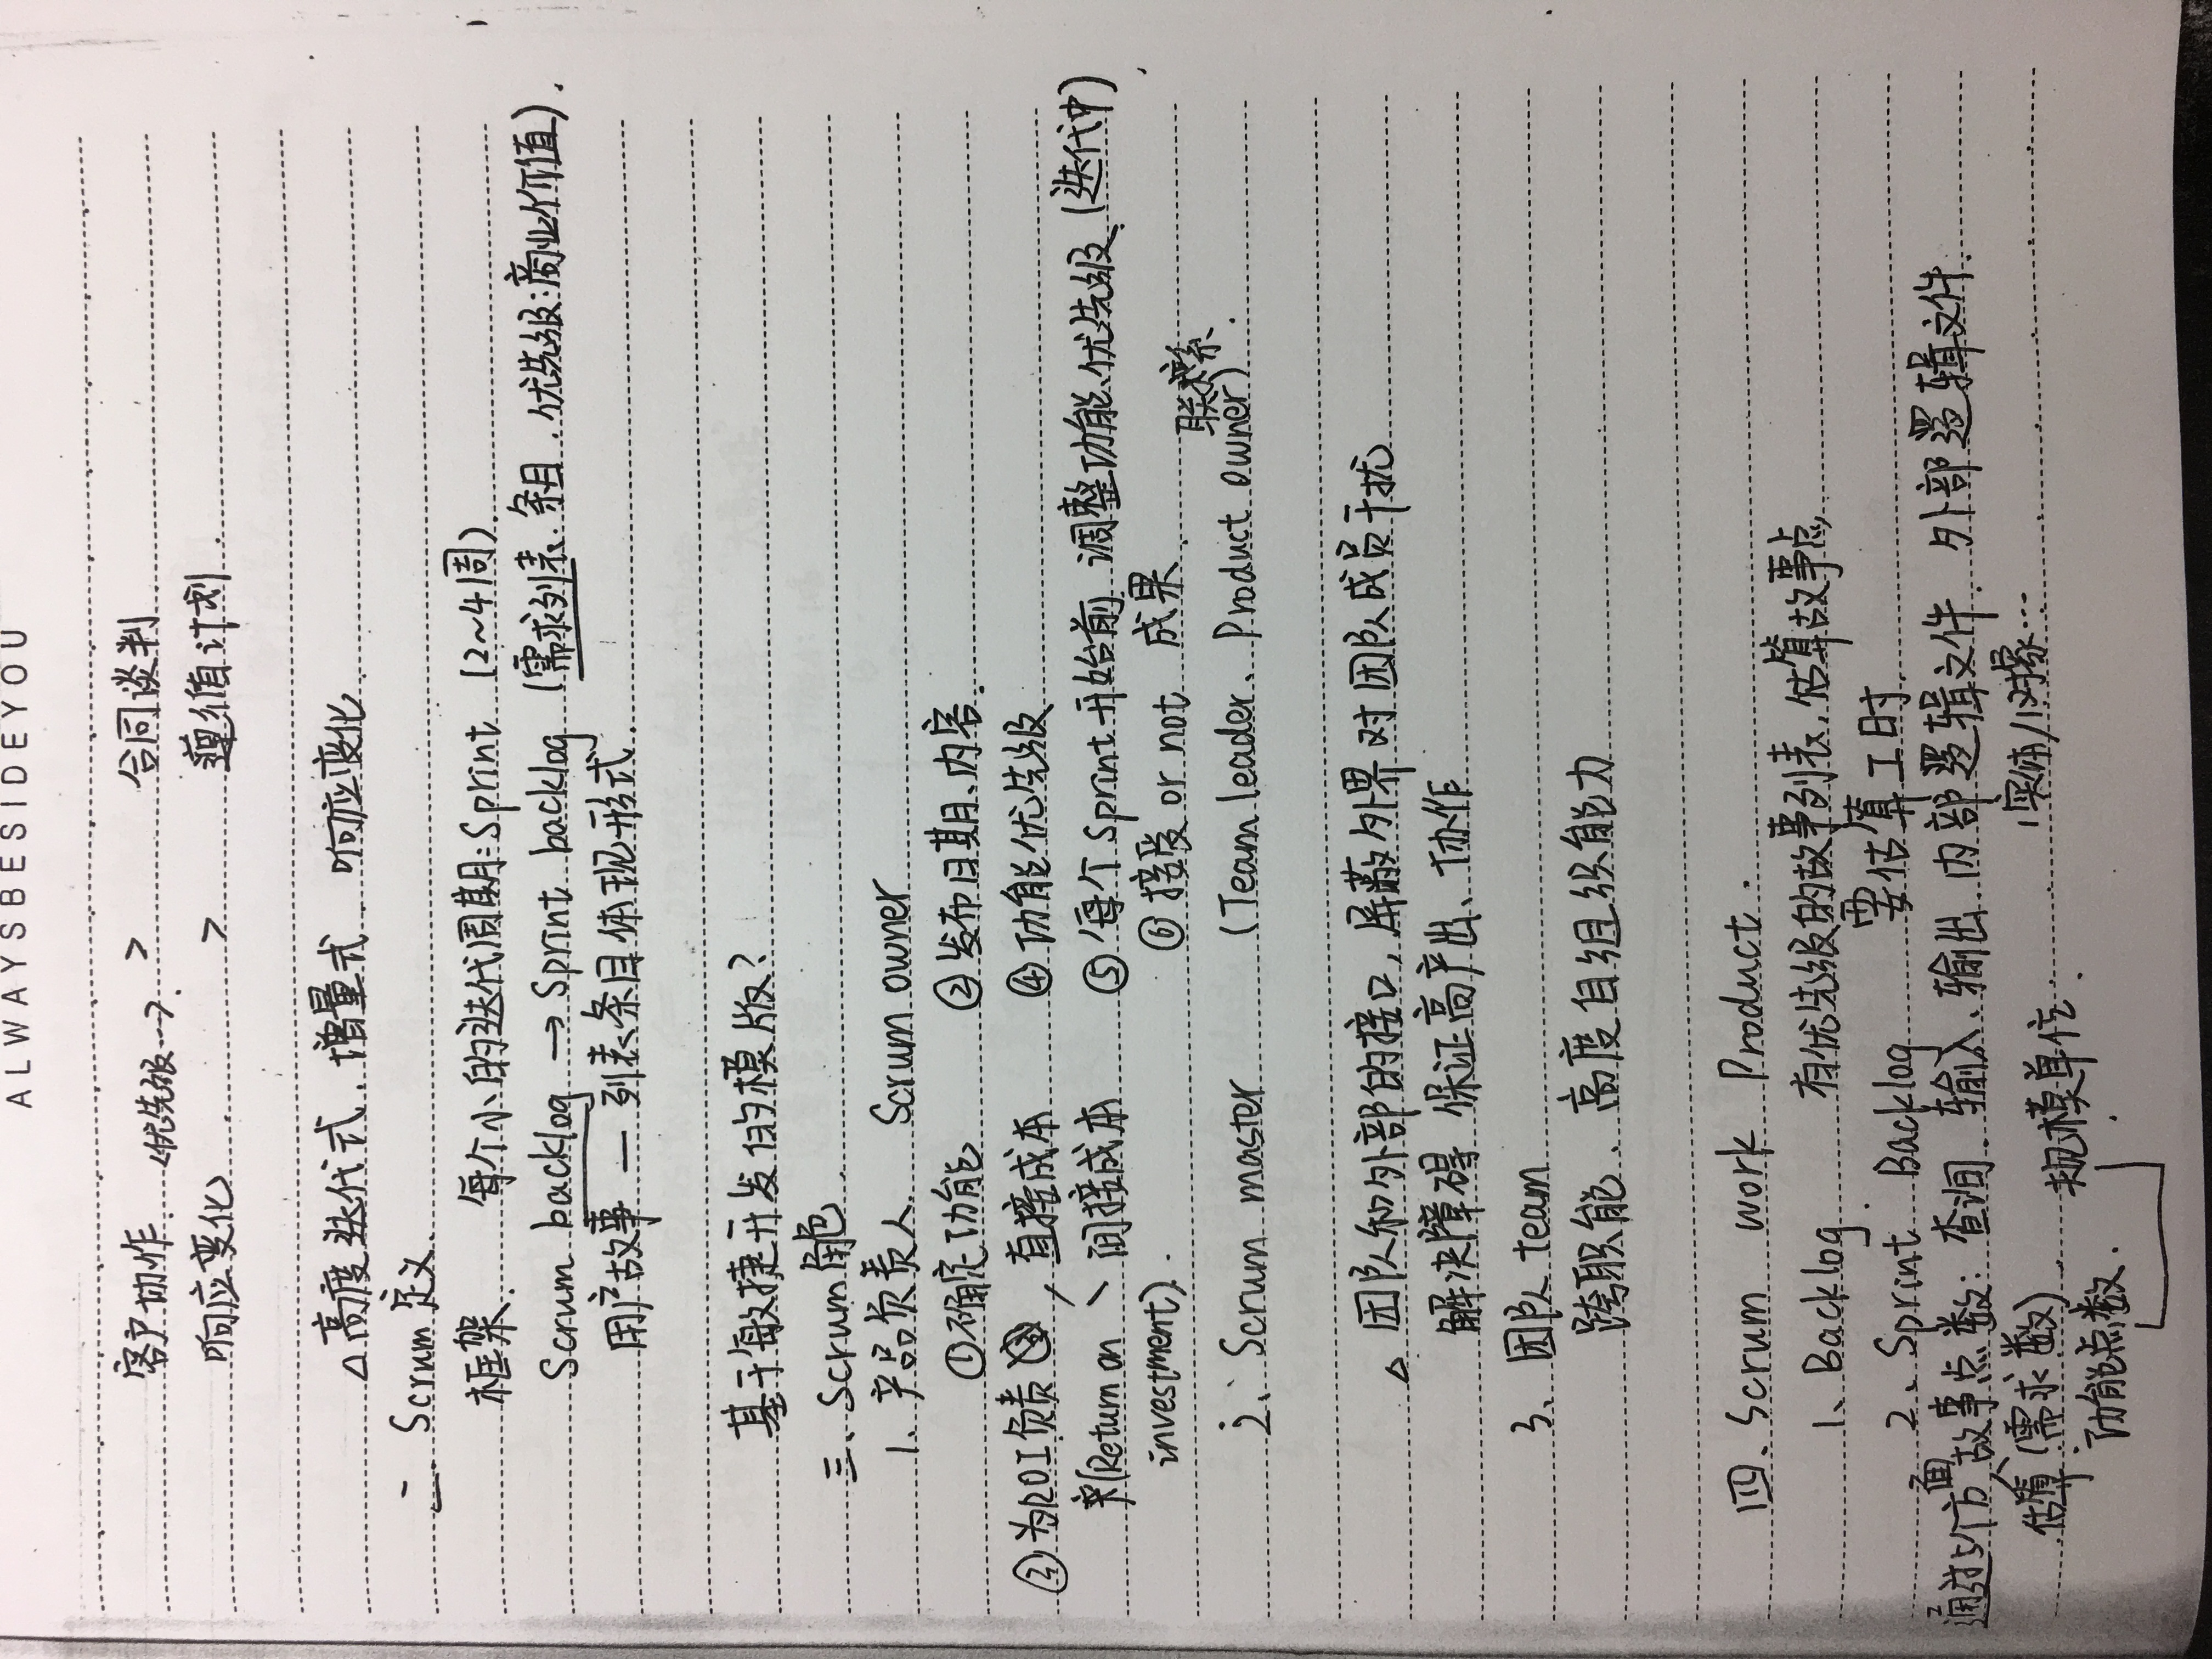 ALWAYSBESIDEYOU
客户协作 (优先级…) > 合同谈判
响应变化 > 遵循计划.
△高度迭代式、增量式、响应变化.
二. Scrum定义.
框架. 每个小的迭代周期:Sprint (2~4周).
Scrum backlog → Sprint backlog (需求列表.条目.优先级:商业价值).
用户故事 — 列表条目体现形式.
基于敏捷开发的模版?
三、Scrum角色.
1、产品负责人. Scrum owner
①确定功能 ②发布日期、内容.
③为ROI负责, 直接成本 ④功能优先级
(Return on 、间接成本 ⑤每个Sprint开始前 调整功能、优先级 (迭代中)
investment). ⑥接受 or not 成果.
联系
2、Scrum master (Team leader、Product owner).
△ 团队和外部的接口, 屏蔽外界对团队成员干扰
解决障碍 保证高产出、协作
3、团队 team
跨职能、高度自组织能力
四、Scrum work Product.
1、Backlog. 有优先级的故事列表,估算故事点
2、Sprint Backlog 要估算工时.
通过5个方面 故事点数: 查询、输入、输出、内部逻辑文件、外部逻辑文件.
估算 (需求数). 规模单位. (实体/对象…
功能点数.